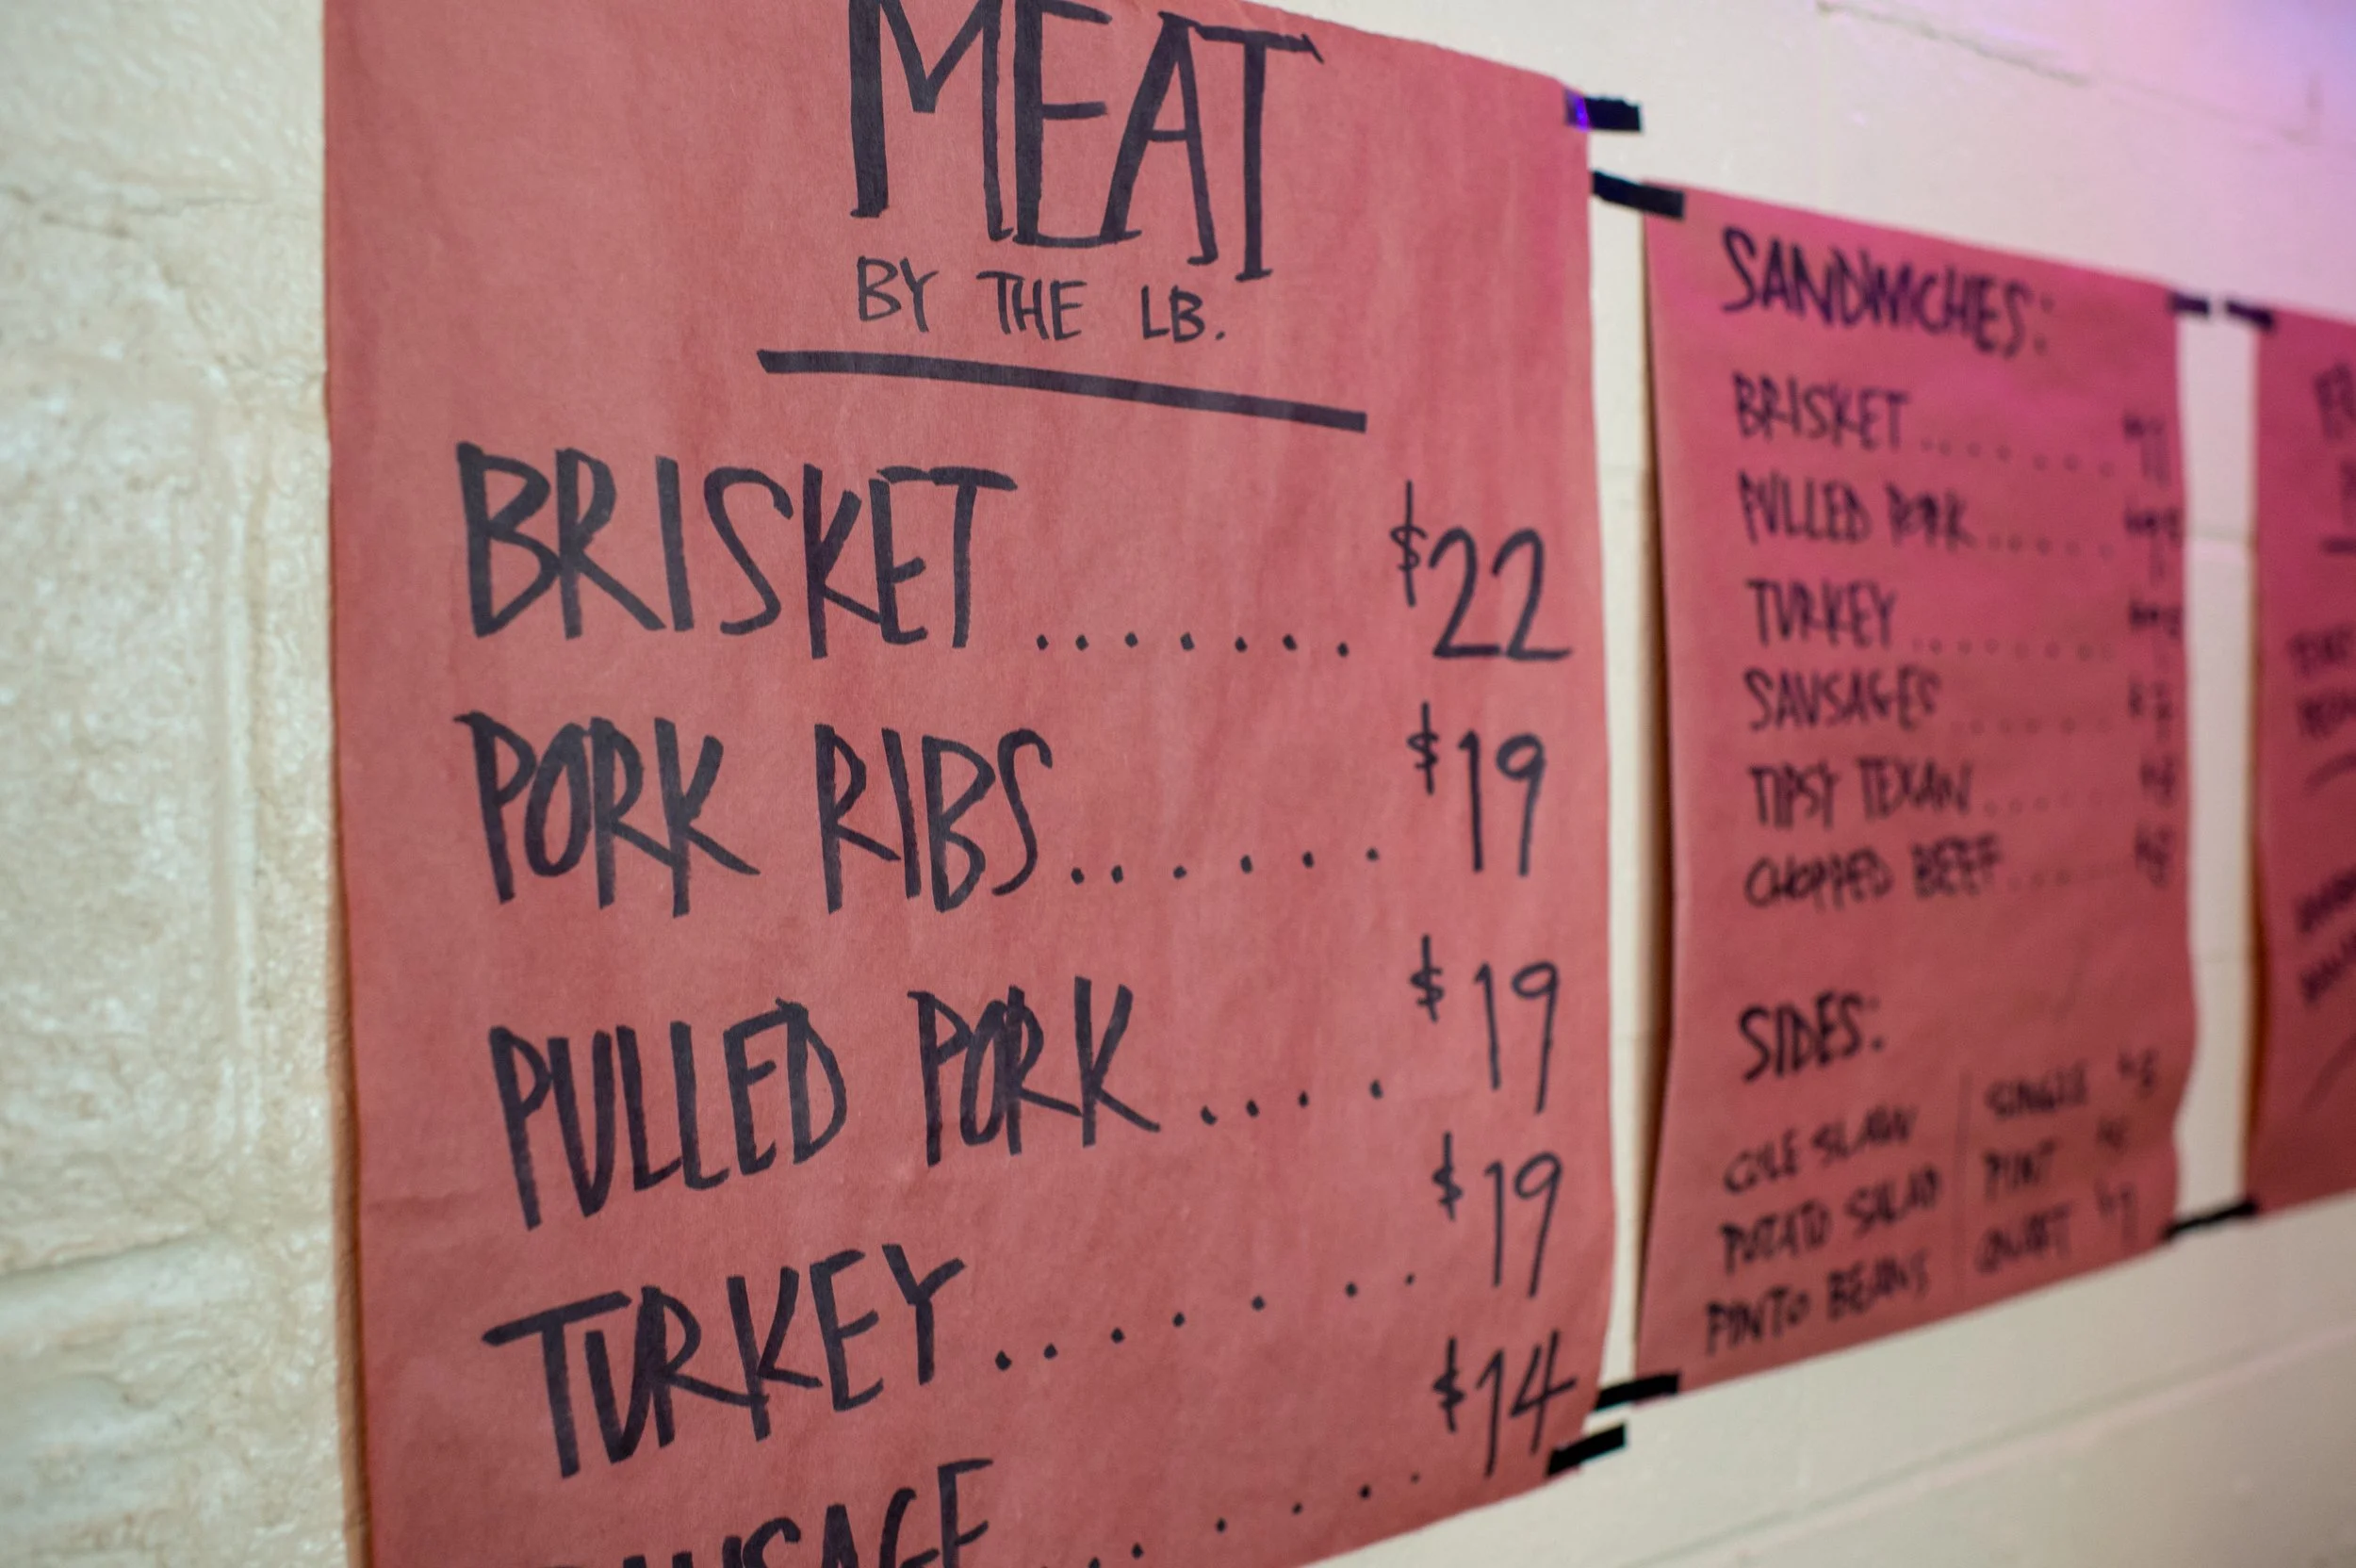 MEAT
BY THE LB.
BRISKET ....... $22
PORK RIBS ...... $19
PULLED PORK .... $19
TURKEY ...... $19
SAUSAGE ...... $14
SANDWICHES:
BRISKET
PULLED PORK
TURKEY
SAUSAGES
TIPSY TEXAN
CHOPPED BEEF
SIDES:
COLE SLAW
POTATO SALAD
PINTO BEANS
SINGLE
PINT
QUART